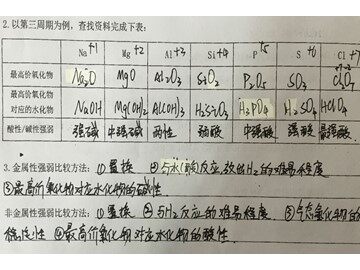 2.以第三周期为例，查找资料完成下表：
Na +1 Mg +2 Al +3 Si +4 P +5 S +6 Cl +7
最高价氧化物 Na2O MgO Al2O3 SiO2 P2O5 SO3 Cl2O7
最高价氧化物对应的水化物 NaOH Mg(OH)2 Al(OH)3 H2SiO3 H3PO4 H2SO4 HClO4
酸性/碱性强弱 强碱 中强碱 两性 弱酸 中强酸 强酸 最强酸
3.金属性强弱比较方法：①置换 ②与水(酸)反应放出H2的难易程度
③最高价氧化物对应水化物的碱性
非金属性强弱比较方法：①置换 ②与H2反应的难易程度 ③气态氢化物的
稳定性 ④最高价氧化物对应水化物的酸性